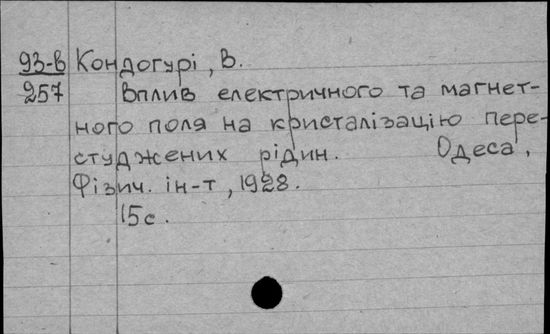 93-в Кондогурі, В.
257 Вплив електричного та магнет-
ного поля на кристалізацію пере-
студжених рідин. Одеса,
Фізич. ін-т, 1928.
15с.